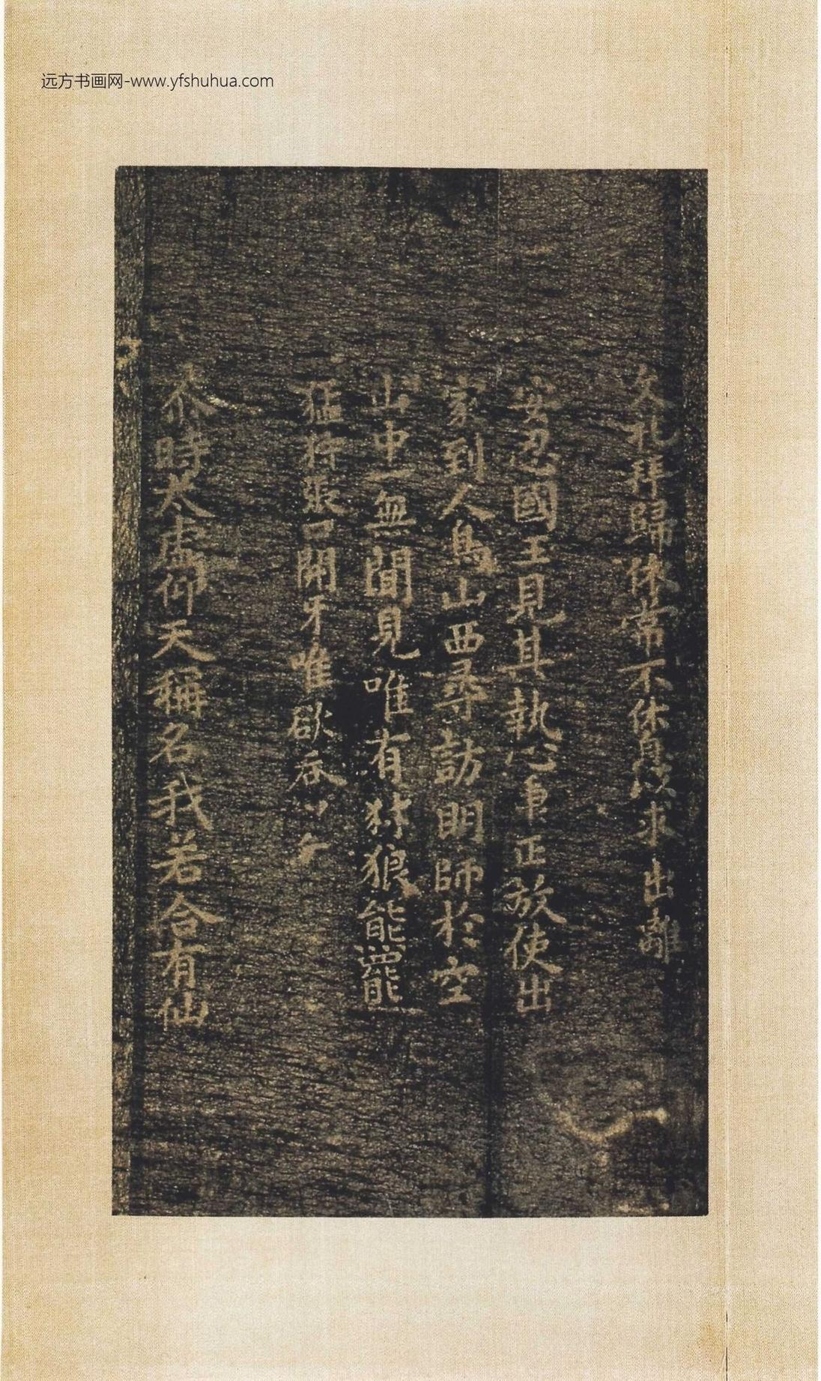 远方书画网-www.yfshuhua.com
文礼拜歸依常不休息以求出離
安忍國王見其執心東正放使出
家到人鳥山西尋訪明師於空
山中一無聞見唯有犲狼能羆
猛狩張口開牙唯欲吞
尒時太虛仰天稱名我若合有仙